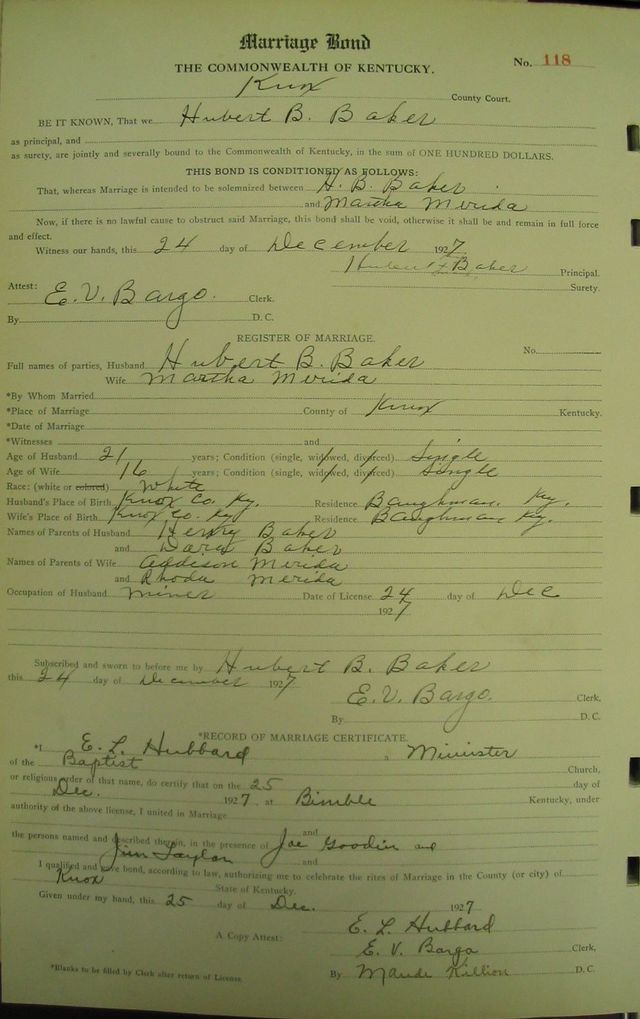 Marriage Bond
No. 118
THE COMMONWEALTH OF KENTUCKY.
Knox County Court.
BE IT KNOWN, That we Hubert B. Baker
as principal, and
as surety, are jointly and severally bound to the Commonwealth of Kentucky, in the sum of ONE HUNDRED DOLLARS.
THIS BOND IS CONDITIONED AS FOLLOWS:
That, whereas Marriage is intended to be solemnized between H. B. Baker
and Martha Merida
Now, if there is no lawful cause to obstruct said Marriage, this bond shall be void, otherwise it shall be and remain in full force
and effect.
Witness our hands, this 24 day of December 1927
Hubert Baker Principal.
Surety.
Attest: E. V. Bargo. Clerk.
By D. C.
REGISTER OF MARRIAGE.
No.
Full names of parties, Husband Hubert B. Baker
Wife Martha Merida
*By Whom Married
*Place of Marriage County of Knox Kentucky.
*Date of Marriage
*Witnesses and
Age of Husband 21 years; Condition (single, widowed, divorced) Single
Age of Wife 16 years; Condition (single, widowed, divorced) Single
Race: (white or colored) White
Husband's Place of Birth Knox Co. Ky. Residence Baughman, Ky.
Wife's Place of Birth Knox Co. Ky Residence Baughman Ky.
Names of Parents of Husband Henry Baker
and Baker
Names of Parents of Wife Addison Merida
and Rhoda Merida
Occupation of Husband Miner Date of License 24 day of Dec
1927
Subscribed and sworn to before me by Hubert B. Baker
this 24 day of December 1927
E. V. Bargo. Clerk,
By D. C.
*RECORD OF MARRIAGE CERTIFICATE.
*I E. L. Hubbard a Minister
of the Baptist Church,
or religious order of that name, do certify that on the 25 day of
Dec. 1927 at Bimble Kentucky, under
authority of the above license, I united in Marriage
and
the persons named and described therein, in the presence of Joe Goodin and
Jim Taylor and
I qualified and gave bond, according to law, authorizing me to celebrate the rites of Marriage in the County (or city) of
Knox State of Kentucky.
Given under my hand, this 25 day of Dec. 1927
E. L. Hubbard
A Copy Attest: E. V. Bargo Clerk,
*Blanks to be filled by Clerk after return of License By Maude Killion D. C.